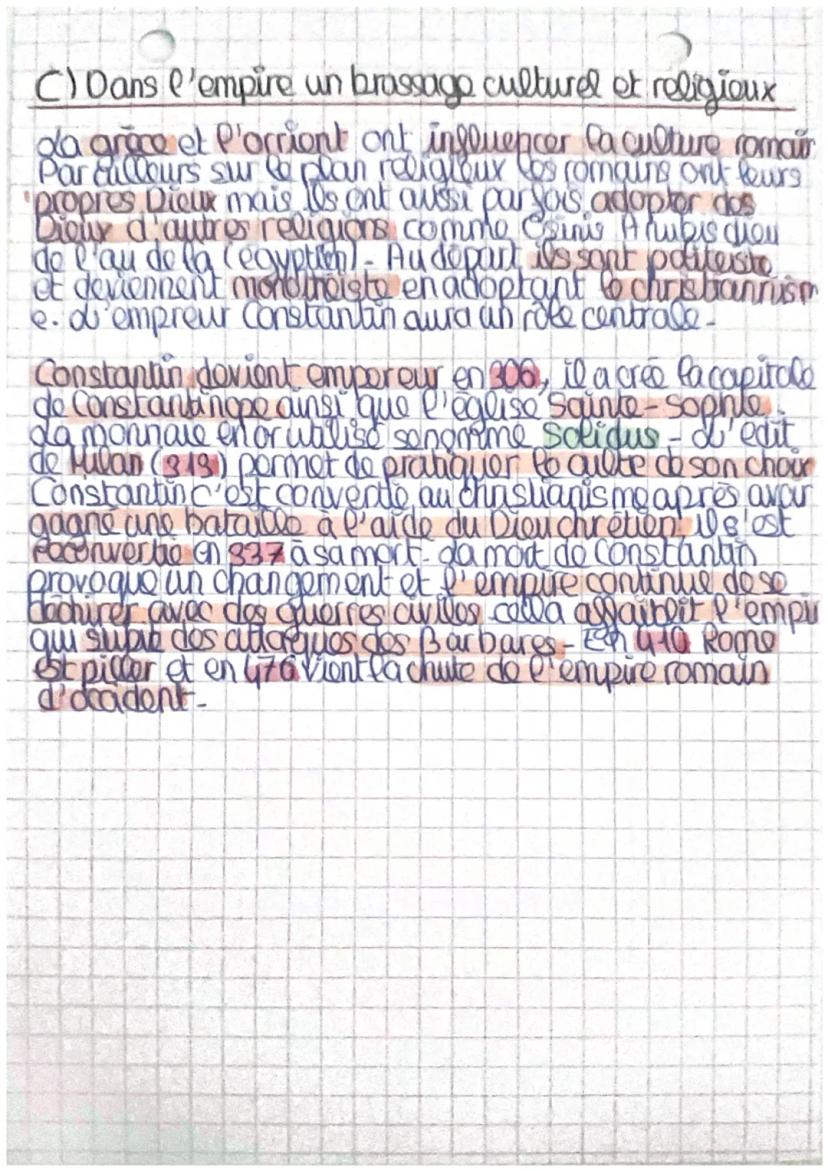 C) Dans l'empire un brassage culturel et religieux
La grâce et l'orriont ont influencer la culture romain
Par ailleurs sur le plan religieux les romains ont leurs
propres Dieux mais ils ont aussi parfois adopter des
Dieux d'autres religions comme Osiris Anubis dieu
de l'au de la (égyptien) - Au départ ils sont politeiste
et deviennent monotheiste en adoptant le christiannism
e. L'empreur Constantin aura un rôle centrale -
Constantin devient empereur en 306, il a crée la capitale
de Constantinope ainsi que l'église Sainte-Sophie.
La monnaie en or utilisé se nomme Solidus - L'edit
de Milan (313) permet de pratiquer le culte de son choix
Constantin c'est convertie au christianisme après avoir
gagné une bataille à l'aide du Dieu chrétien, il s'est
reconvertie en 337 à sa mort - La mort de Constantin
provoque un changement et l'empire continue de se
déchirer avec des guerres civiles cella affaiblit l'empir
qui subit des attaques des Barbares - En 410 Rome
est piller et en 476 vient la chute de l'empire romain
d'occident -